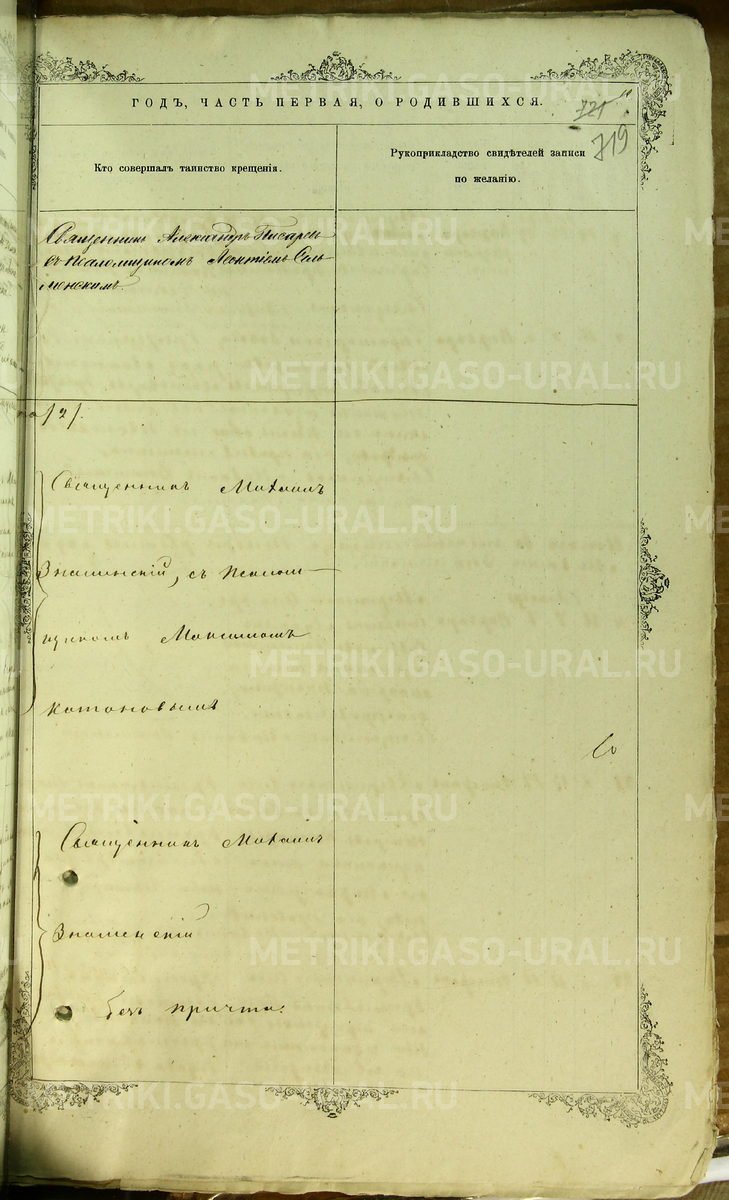 ГОДЪ, ЧАСТЬ ПЕРВАЯ, О РОДИВШИХСЯ.
721
719
Кто совершалъ таинство крещенія.
Рукоприкладство свидѣтелей записи
по желанію.
Священникъ Александръ Писарев
съ Псаломщикомъ Леонтіемъ
/2/.
Священникъ Михаилъ
Знаменскій, съ Псалом-
щикомъ Максимомъ
Котановымъ
Священникъ Михаилъ
Знаменскій
безъ причта.
METRIKI.GASO-URAL.RU